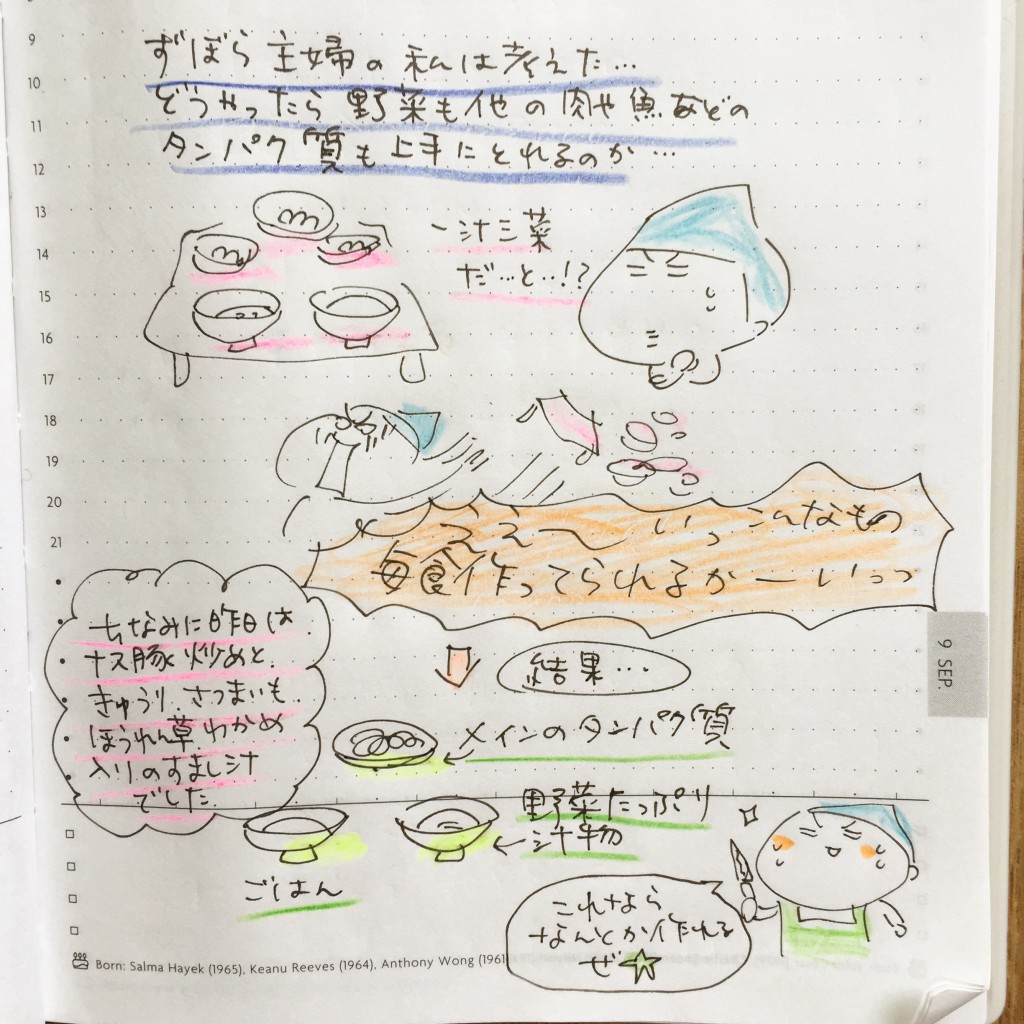 9
10
11
12
13
14
15
16
17
18
19
20
21
ずぼら主婦の私は考えた…
どうやったら野菜も他の肉や魚などの
タンパク質も上手にとれるのか…
一汁三菜
だ…と…!?
ええ〜いっこんなもの
毎食作ってられるかーいっっ
ちなみに昨日は
ナス豚炒めと
きゅうり、さつまいも
ほうれん草、わかめ
入りのすまし汁
でした
結果…
メインのタンパク質
野菜たっぷり
汁物
ごはん
これなら
なんとか作れる
ぜ☆
9 SEP
Born: Salma Hayek (1965), Keanu Reeves (1964), Anthony Wong (1961